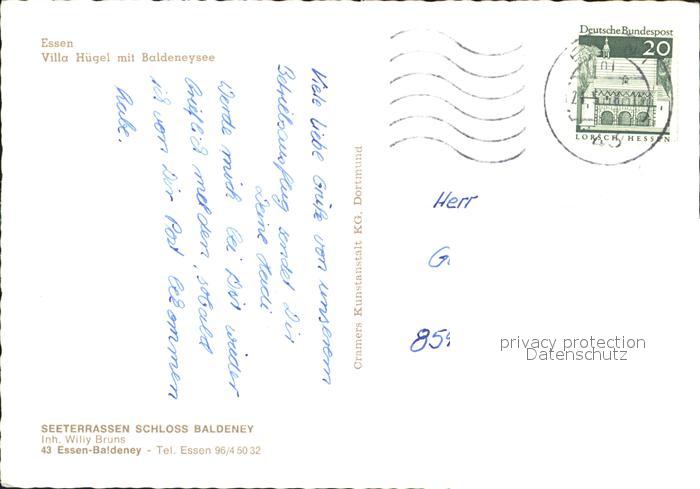 Essen
Villa Hügel mit Baldeneysee
Viele liebe Grüße von unserem
Betriebsausflug sendet Dir
Deine Heidi
Werde mich bei Dir wieder
brieflich melden, sobald
ich von Dir Post bekommen
habe.
Cramers Kunstanstalt KG. Dortmund
Deutsche Bundespost
20
LORSCH/HESSEN
43
Herr
G
859
privacy protection
Datenschutz
SEETERRASSEN SCHLOSS BALDENEY
Inh. Willy Bruns
43 Essen-Baldeney - Tel. Essen 96/4 50 32